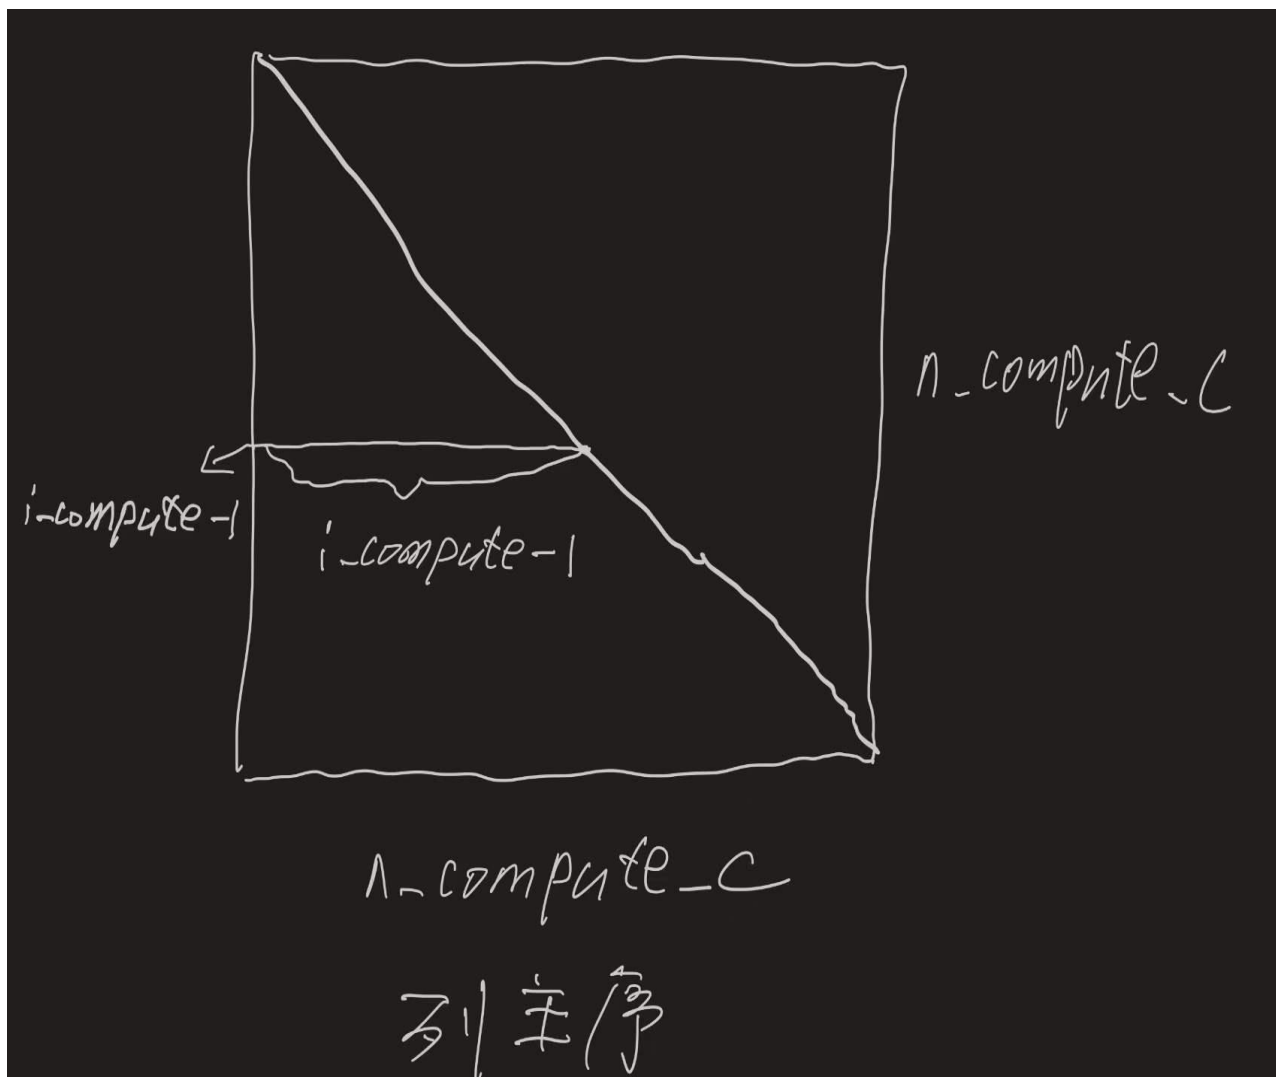 n_compute_c
i_compute-1
i_compute-1
n_compute_c
列主序